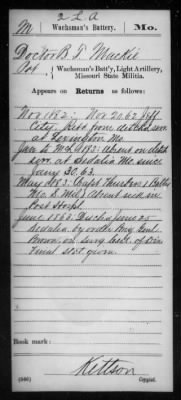 2 L A
M Wachsman's Battery. Mo.
Doctor B. T. Mackie
Pvt, Wachsman's Batt'y, Light Artillery,
Missouri State Militia.
Appears on Returns as follows:
Nov 1862: Nov 20.62 Jeff
City, Ret'd from detch'd serv
at Lexington Mo.
Jan to Mch 1863: Absent on detch
serv. at Sedalia Mo. since
Jany 30.63.
May 1863: Capt Thurber's Battery
Mo. S. Mil.; Absent sick in
Post Hospl.
June 1863: Disch'd June 25
Sedalia by order Brig Genl
Brown, on Surg certf. of Dis
Final stat given.
Book mark:
Kettson
(546) Copyist.